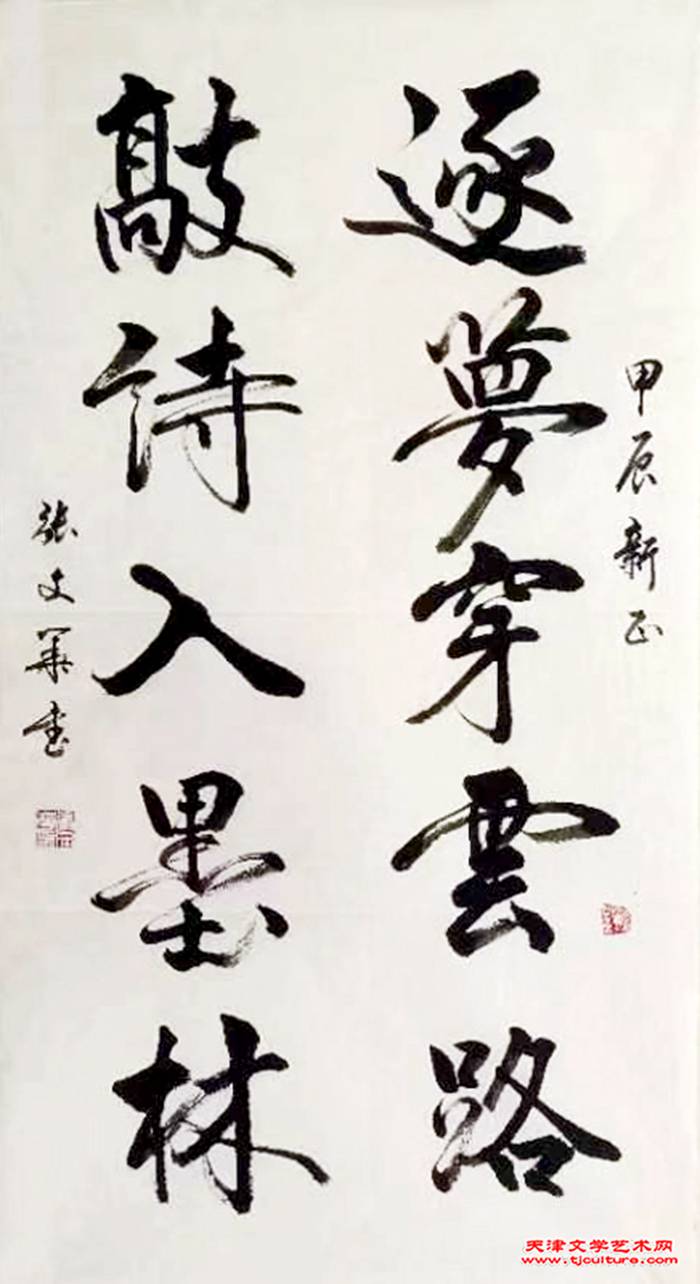 甲辰新正
逐夢穿雲路
敲詩入墨林
張文華书
天津文学艺术网
www.tjculture.com